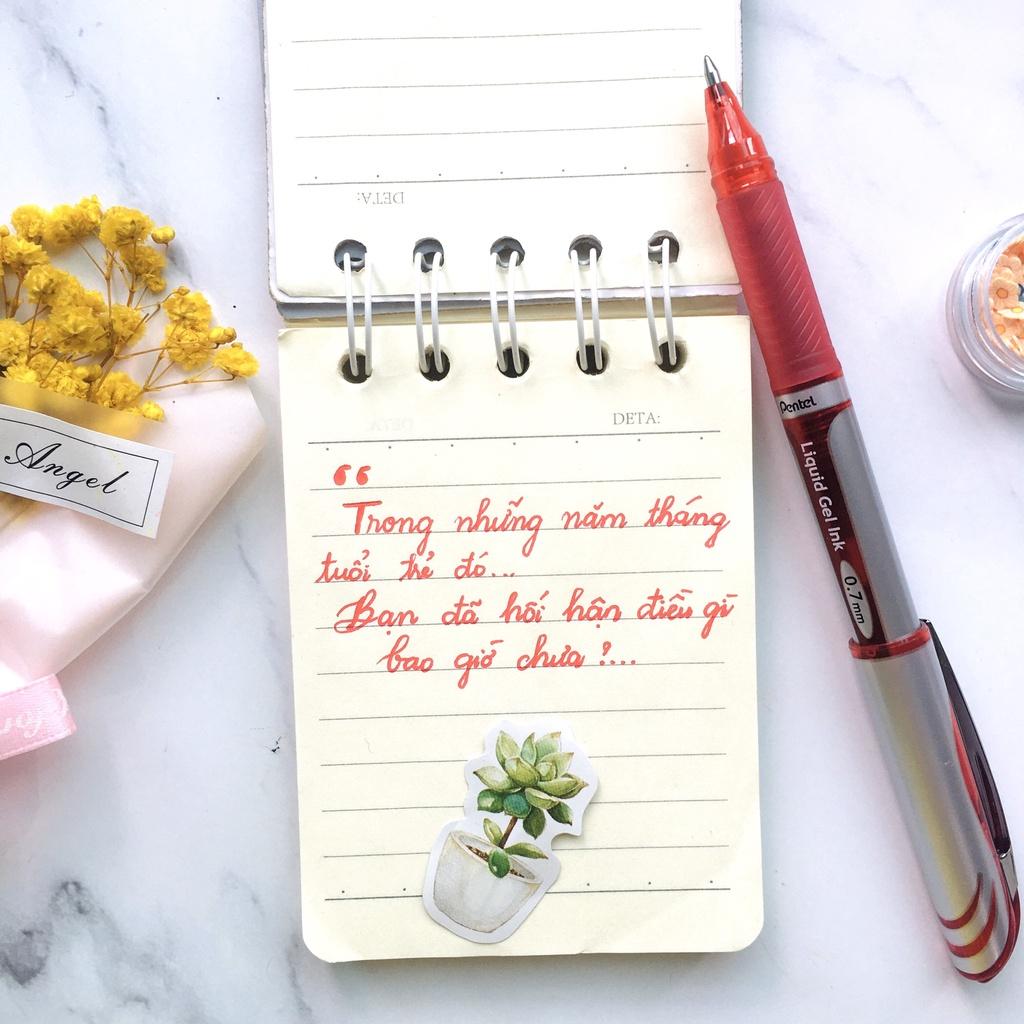 DETA:
DETA:
“
Trong những năm tháng
tuổi trẻ đó...
Bạn đã hối hận điều gì
bao giờ chưa?...
Angel
Pentel
Liquid Gel Ink
0.7mm